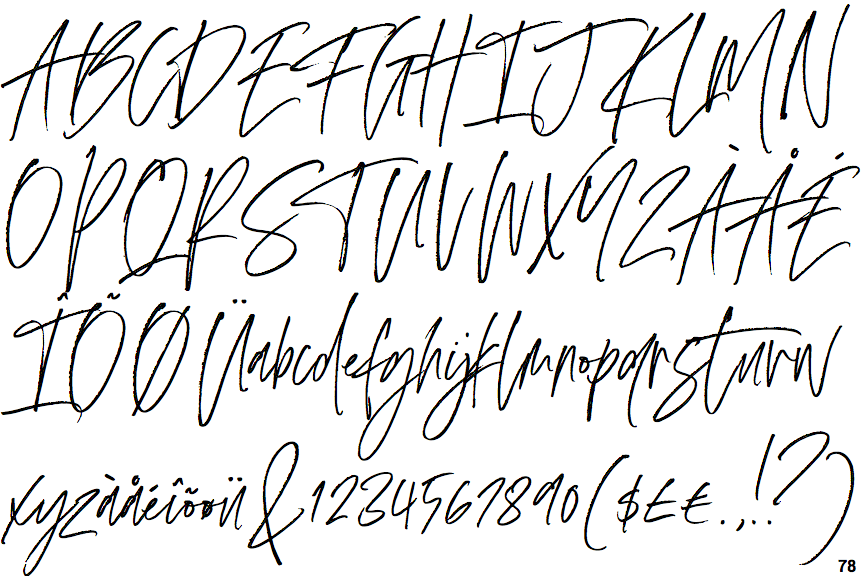 ABCDEFGHIJKLMN
OPQRSTUVWXYZÀÅÉ
ÎÕØÜabcdefghijklmnopqrstuvw
xyzàåéîõøü&1234567890($££.,.!?)
78